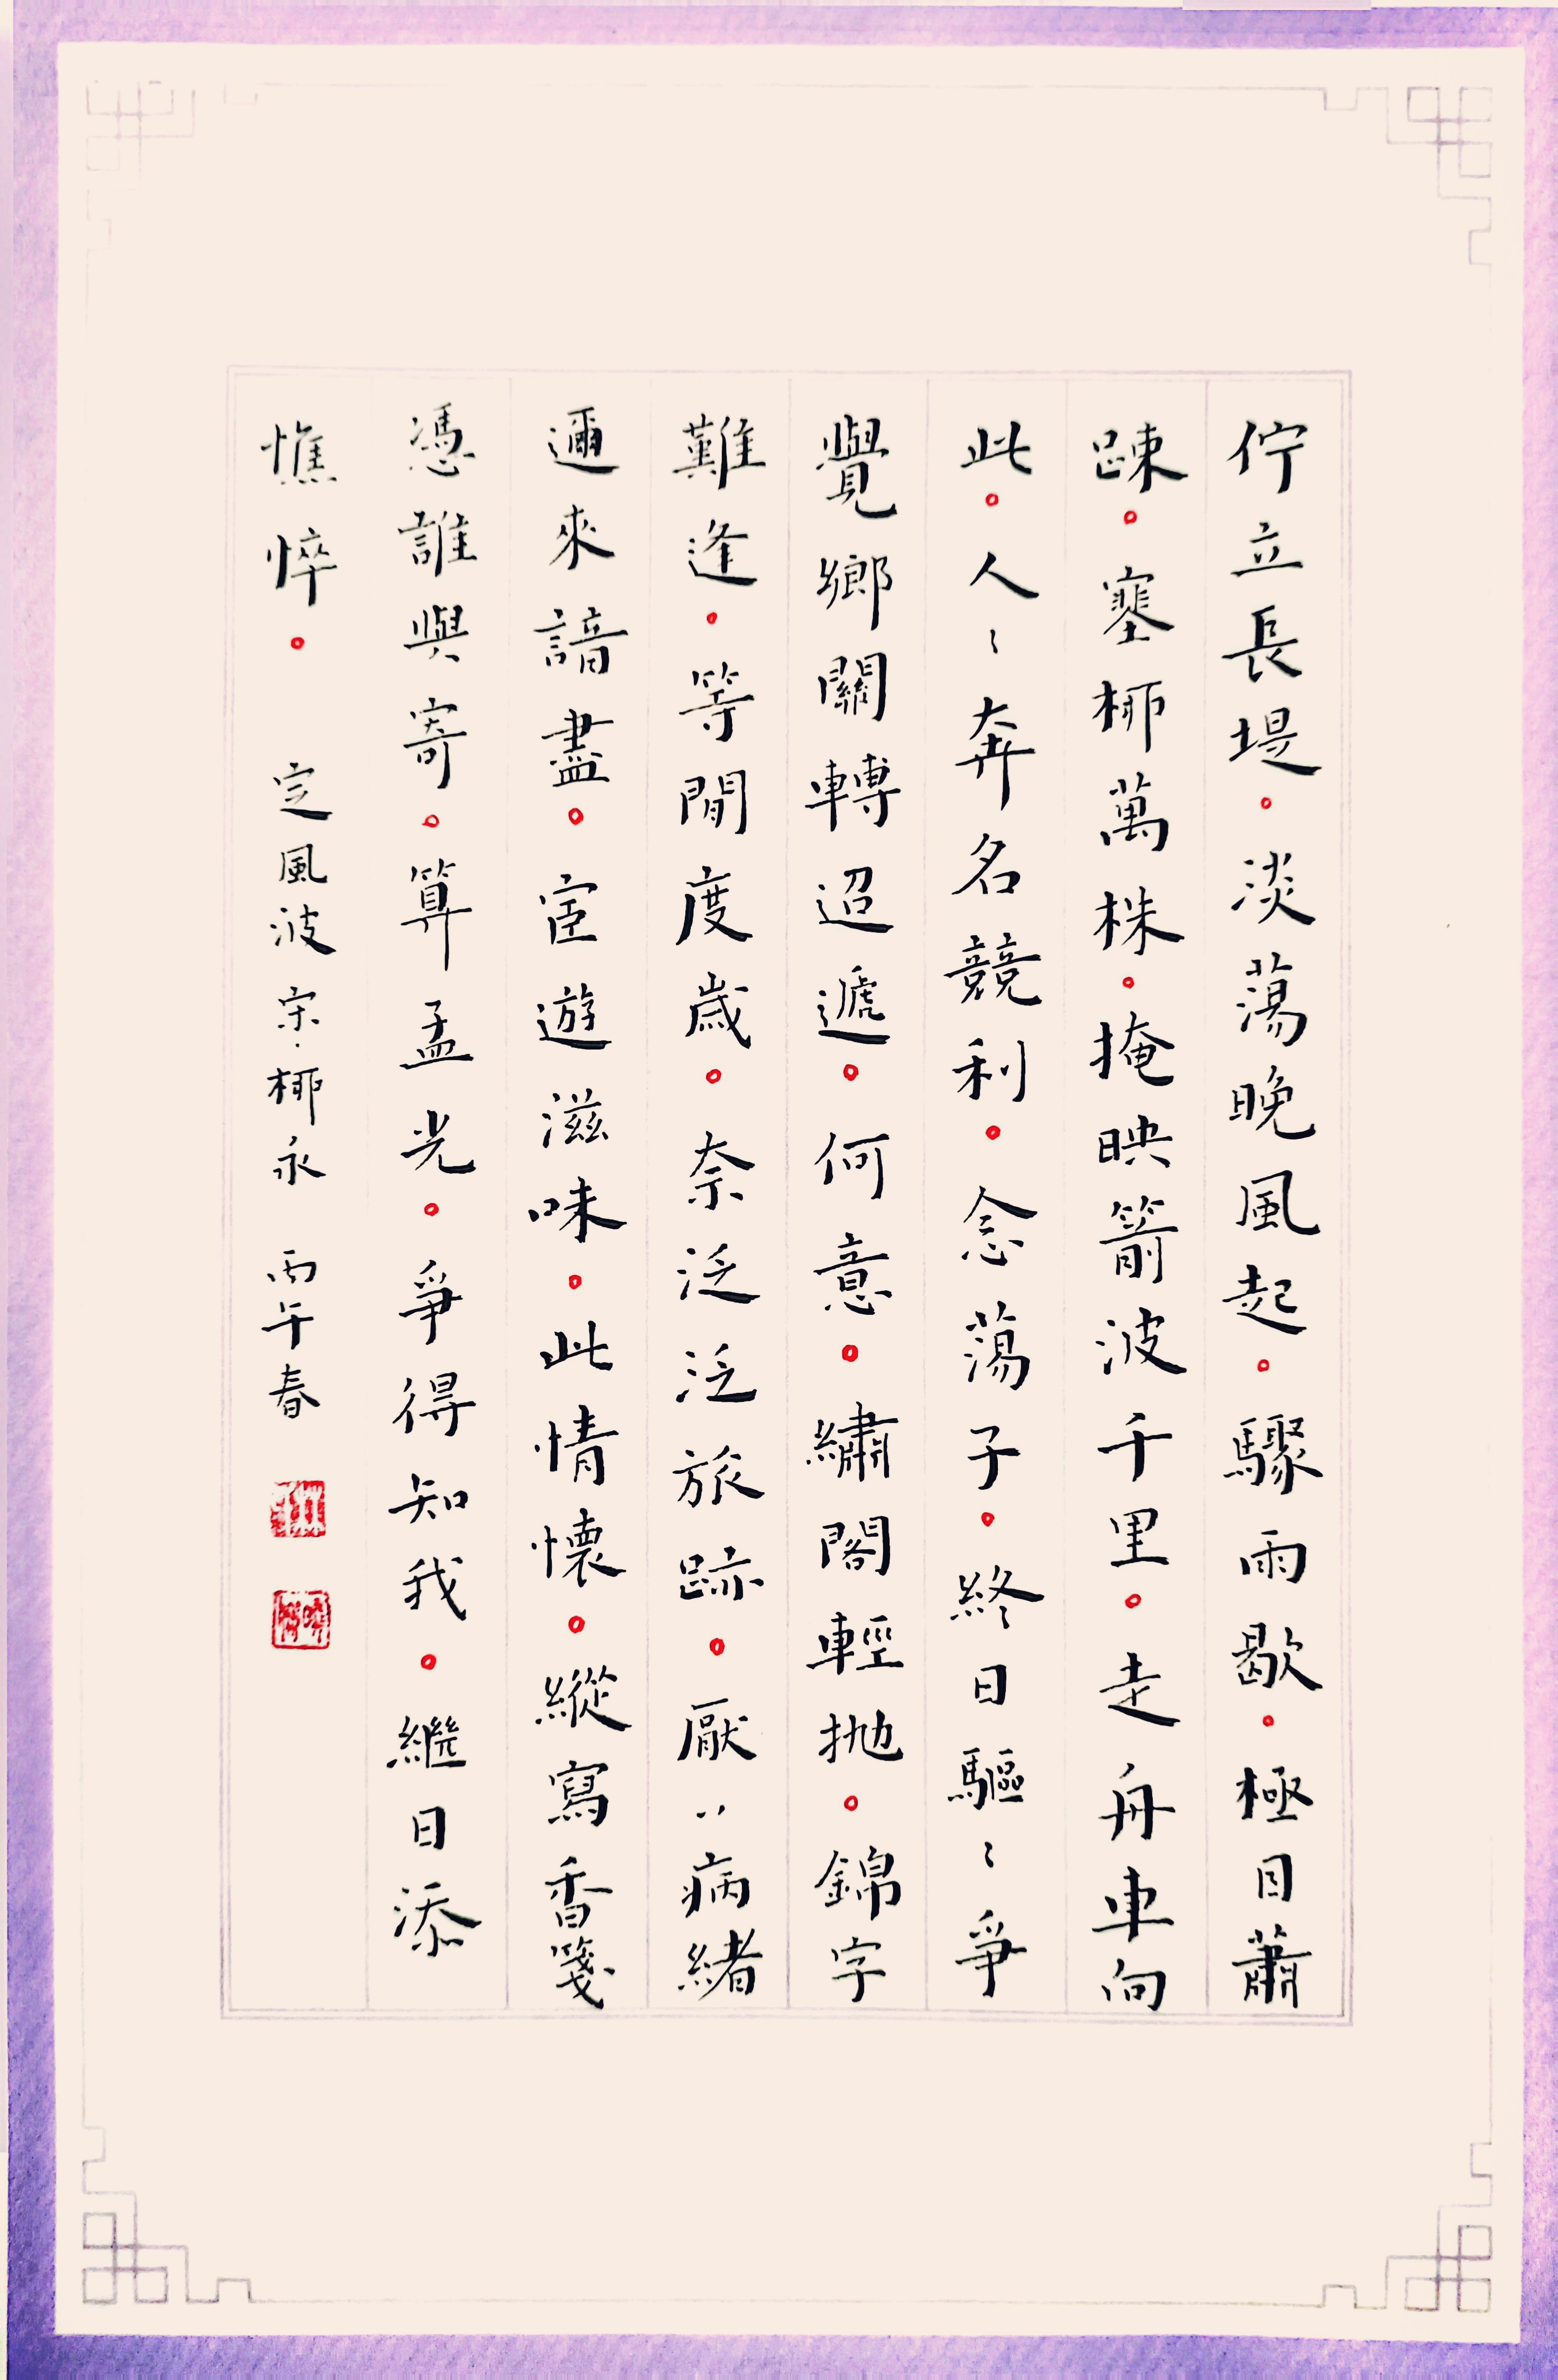 佇立長堤。淡蕩晚風起。驟雨歇。極目蕭
踈。塞栁萬株。掩映箭波千里。走舟車向
此。人〻奔名競利。念蕩子。終日驅〻爭
覺鄉關轉迢遞。何意。繡閣輕拋。錦字
難逢。等閒度歲。奈泛泛旅跡。厭〻病緒
邇來諳盡。宦遊滋味。此情懷。縱寫香箋
憑誰與寄。算孟光。爭得知我。繼日添
憔悴。 定風波 宋·栁永 丙午春